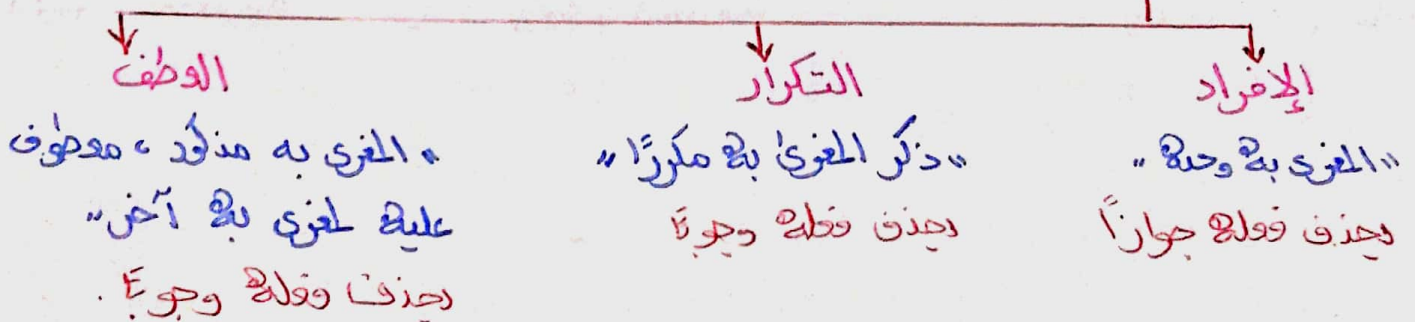 الإفراد
"المغرى به وحده"
يحذف فعله جوازًا
التكرار
"ذكر المغرى به مكررًا"
يحذف فعله وجوبًا
العطف
"المغرى به مذكور، معطوف
عليه مغرى به آخر"
يحذف فعله وجوبًا.